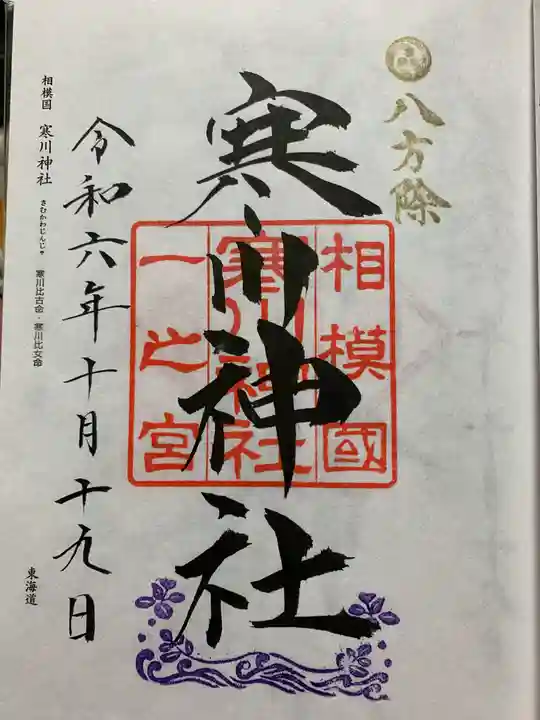 八方除
寒川神社
相模國
寒川神社
一之宮
令和六年十月十九日
相模国 寒川神社 さむかわじんじゃ 寒川比古命・寒川比女命
東海道